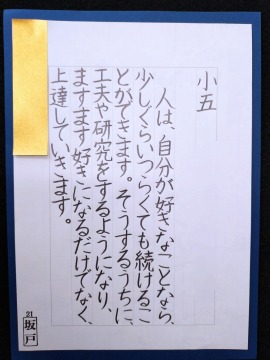 小五
人は、自分が好きなことなら、
少しくらいつらくても続けるこ
とができます。そうするうちに、
工夫や研究をするようになり、
ますます好きになるだけでなく、
上達していきます。
21
坂戸